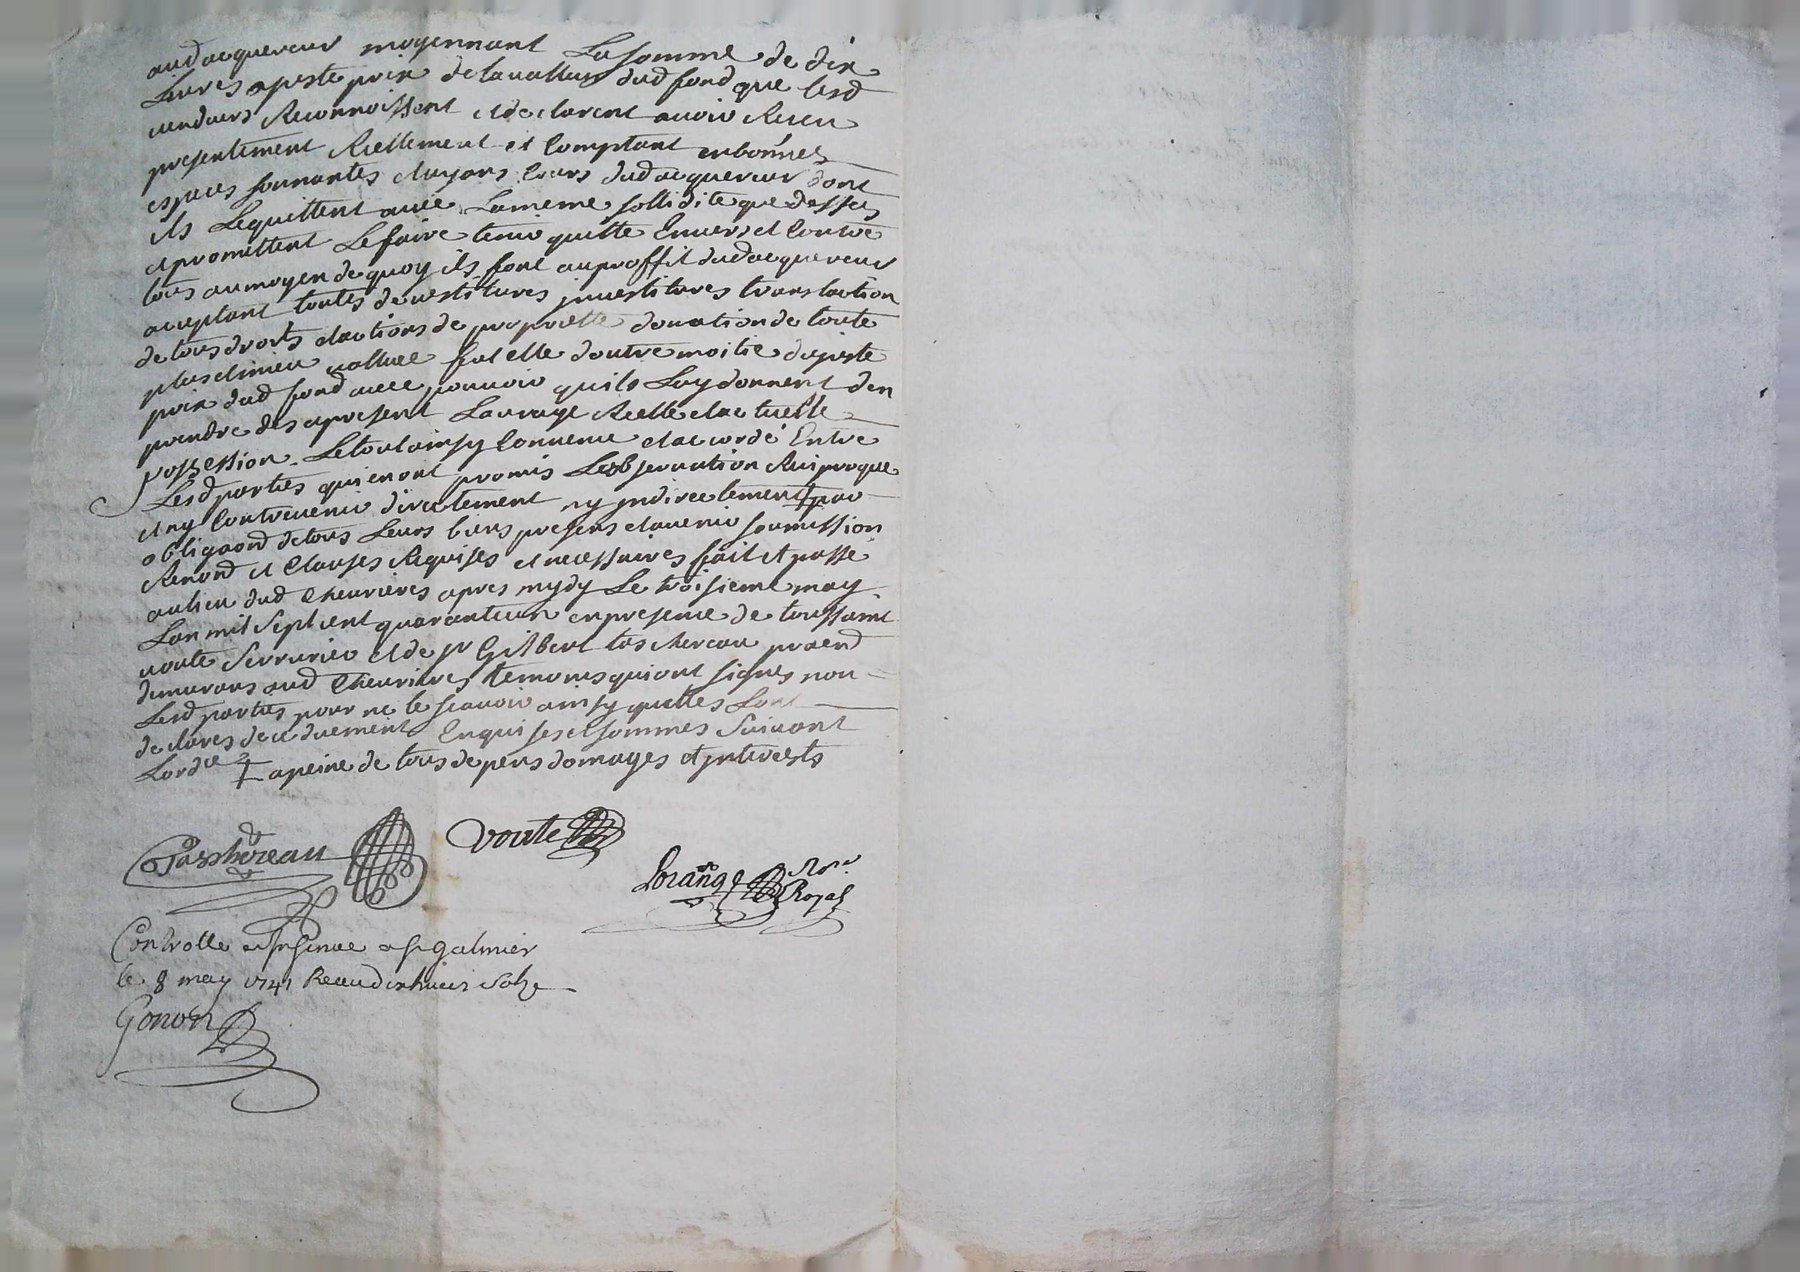 aud acquereur moyennant La somme de dix
Livres a juste prix de la valleur dud fond que lesd
vendeurs Reconnoissent et declarent avoir Receu
presentement Reellement et Comptant en bonnes
espaces sonnantes et ayans Cours dud acquereur dont
ils Le quittent avec La meme solidité que dessus
et promettent Le faire tenir quitte Envers et Contre
tous au moyen de quoy ils font au proffit dud acquereur
acceptant toutes devestitures jnvestitures translation
de tous droits et actions de proprietté donation de toute
plus et mieux vallue fut elle d outre moitié du juste
prix dud fond avec pouvoir quils Luy donnent d en
prendre des a present La vraye Reelle et actuelle
possession Le tout ainsy Convenu et accordé Entre
Lesd parties qui en ont promis Lobservation Reciproque
et ny Contrevenir directement ny jndirectement par
obligaond de tous Leurs biens presens et avenir soumission
Renond et Clauses Requises et necessaires fait et passé
au lieu dud Chevrieres apres mydy Le troisieme may
Lan mil sept cent quarante un en presence de toussaint
voute serrurier et de sr Gilbert taschereau praend
demeurans aud Chevrieres temoins qui ont signés non
Lesd parties pour ne le scavoir ainsy quelles Lont
declarés de ce duement Enquises et sommes suivant
Lordce a peine de tous depens domages et jnterests
Taschereau voute
Lorange Nore
Royal
Controllé et Insinué a St Galmier
le 8 may 1741 Receu dix huict sols
Gonon